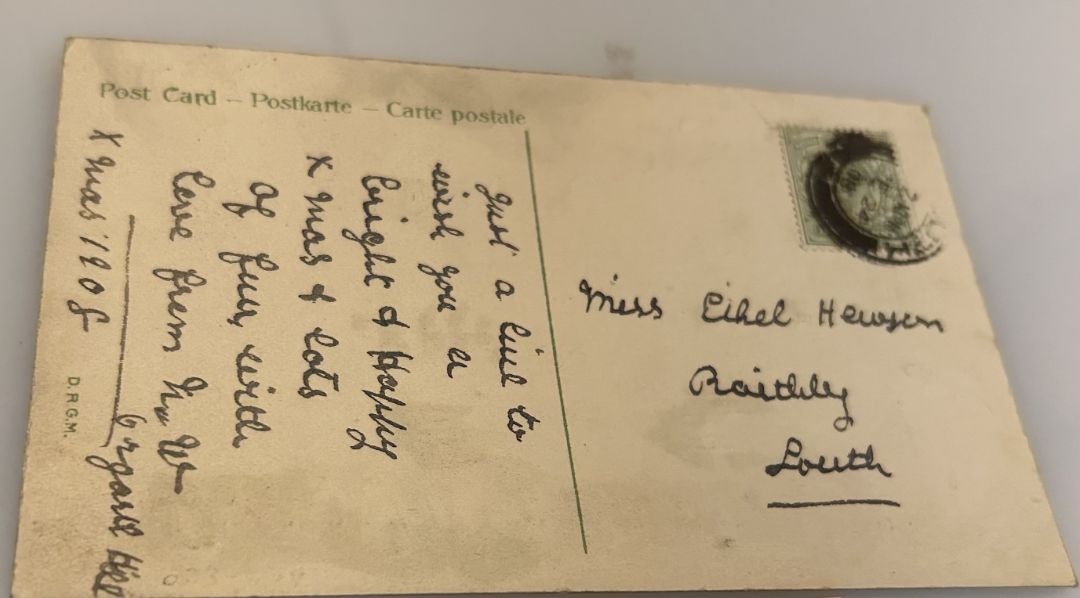 Post Card – Postkarte – Carte postale
Just a line to
wish you a
bright & Happy
X mas & lots
of fun, with
love from N. W
Xmas 1908
D.R.G.M.
Miss Ethel Hewson
Raithby
Louth